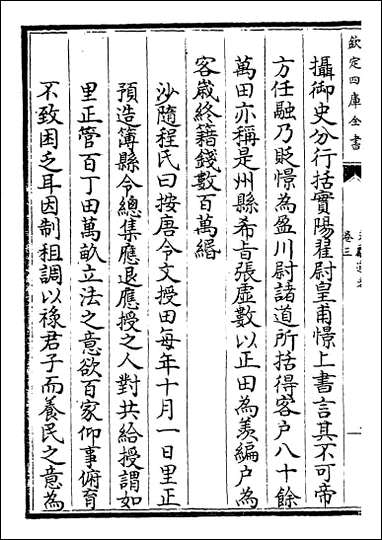 欽定四庫全書
卷三
攝御史分行括實陽翟尉皇甫憬上書言其不可帝
方任融乃貶憬為盈川尉諸道所括得客户八十餘
萬田亦稱是州縣希㫖張虛數以正田為羨編户為
客歲終籍錢數百萬緡
沙隨程氏曰按唐令文授田每年十月一日里正
預造簿縣令總集應退應授之人對共給授謂如
里正管百丁田萬畝立法之意欲百家仰事俯育
不致困乏耳因制租調以祿君子而養民之意為